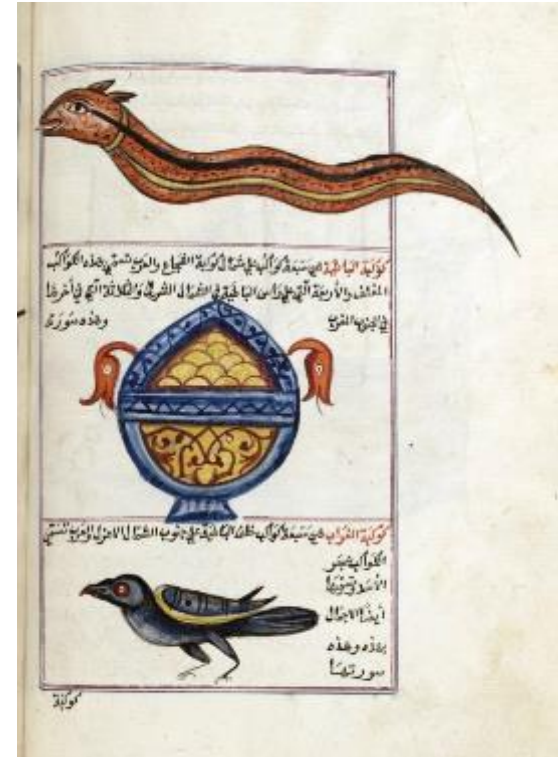 كوكبة الباطية هي سبعة كواكب على شمال كوكبة الشجاع والعرب تسمي هذه الكواكب
المعلف والأربعة التي على رأس الباطية في الشمال الشرقي والثلاثة التي في آخرها
في الجنوب الغربي وهذه صورة
كوكبة الغراب هي سبعة كواكب خلف الباطية على جنوب السماك الاعزل والعرب تسمي
الكواكب عجز
الأسد وتسمى
أيضا الاحمال
بهذه وهذه
صورتها
كوكبة